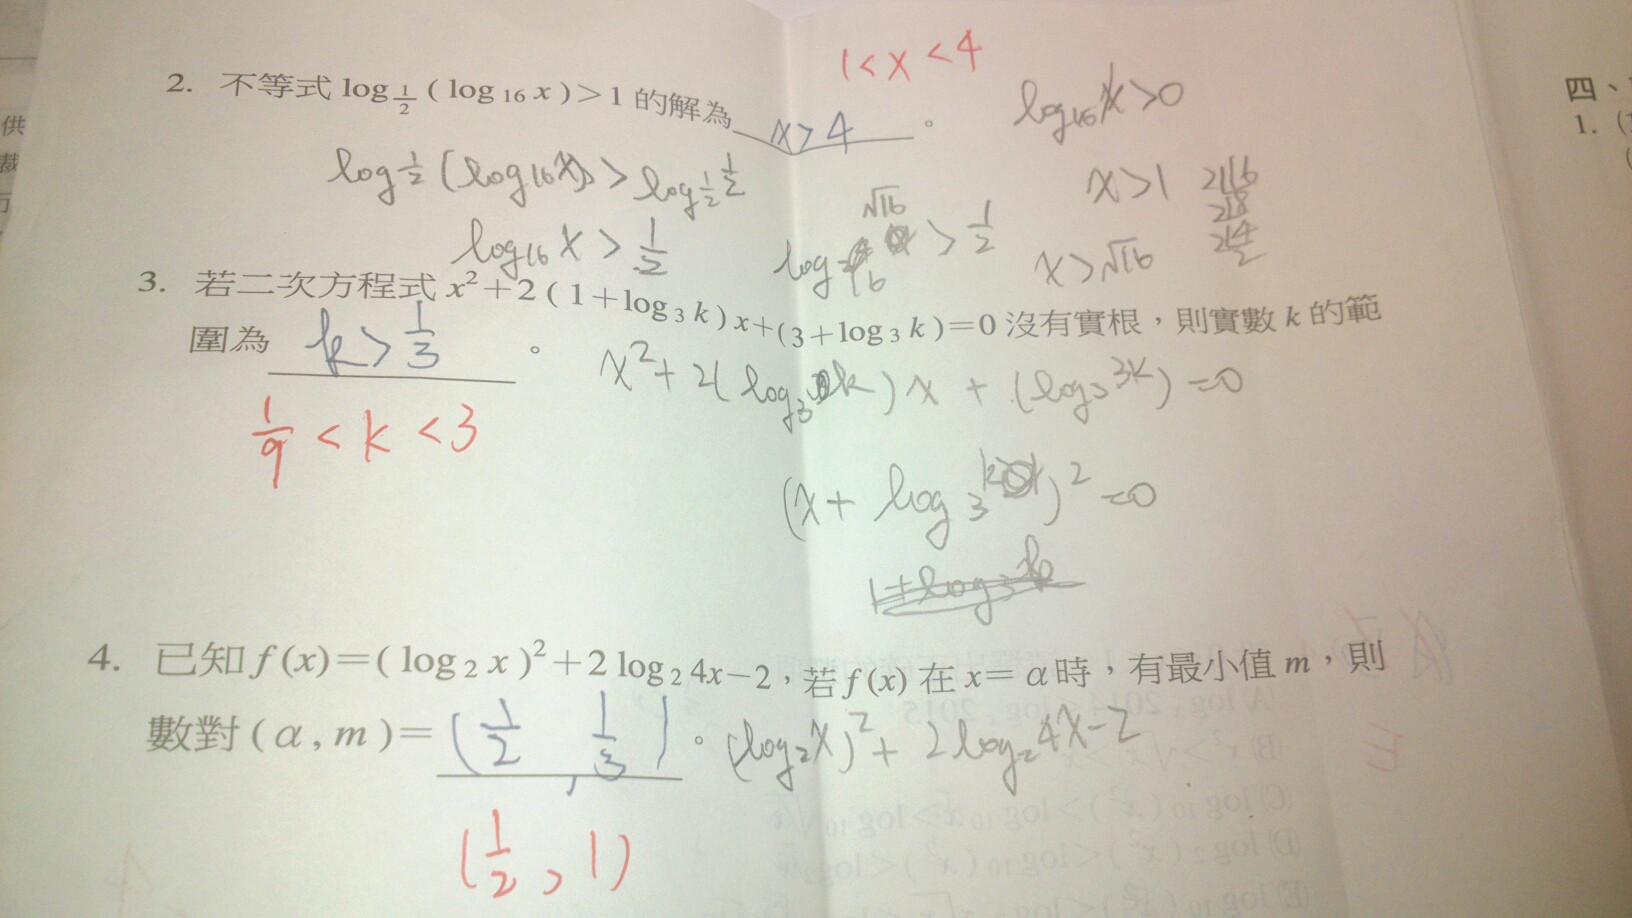 1<x<4
2. 不等式 log 1/2 ( log 16 x )>1 的解為 x>4 。
log16 x>0
log 1/2 (log16 x) > log 1/2 1/2
x>1
2|16
2|8
2|4
2
log16 x > 1/2
log 16 √16 > 1/2
x>√16
3. 若二次方程式 x²+2 ( 1+log 3 k ) x+(3+log 3 k )=0 沒有實根,則實數 k 的範
圍為 k > 1/3 。
x²+ 2( log3 k ) x + (log3 3k) =0
1/9 < k < 3
(x+ log3 k )² =0
1+log3 k
4. 已知 f (x)=( log 2 x )²+2 log 2 4x−2,若 f (x) 在 x= α 時,有最小值 m,則
數對 ( α , m )= ( 1/2 , 1/3 ) 。 (log2 x)²+ 2log2 4x−2
( 1/2 , 1)
四、
1. (
供
裁